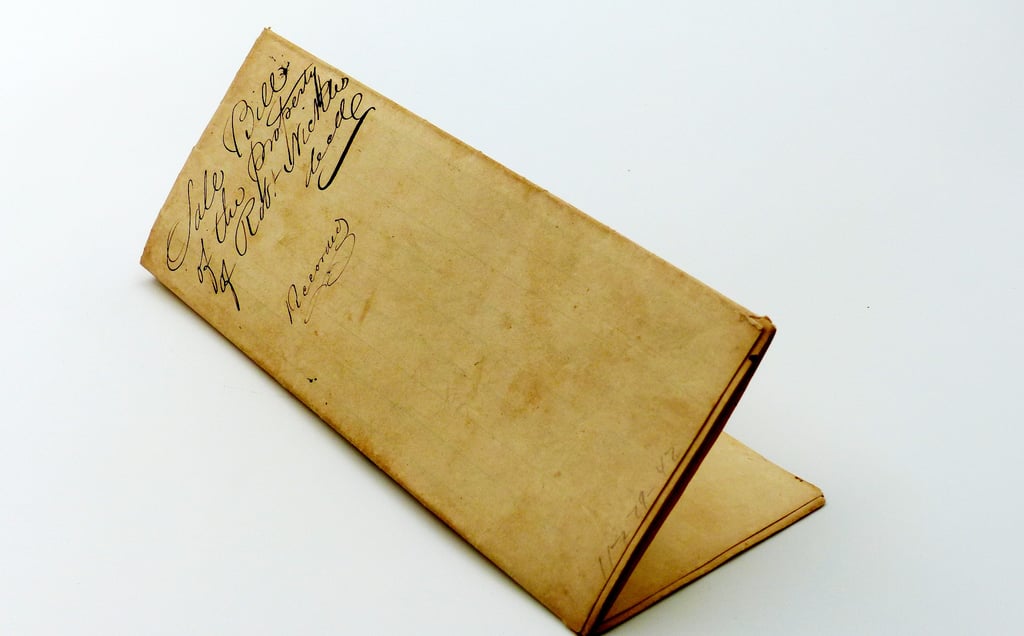 Sale Bill
of the property
of Robt Nickles
decd
Recorded